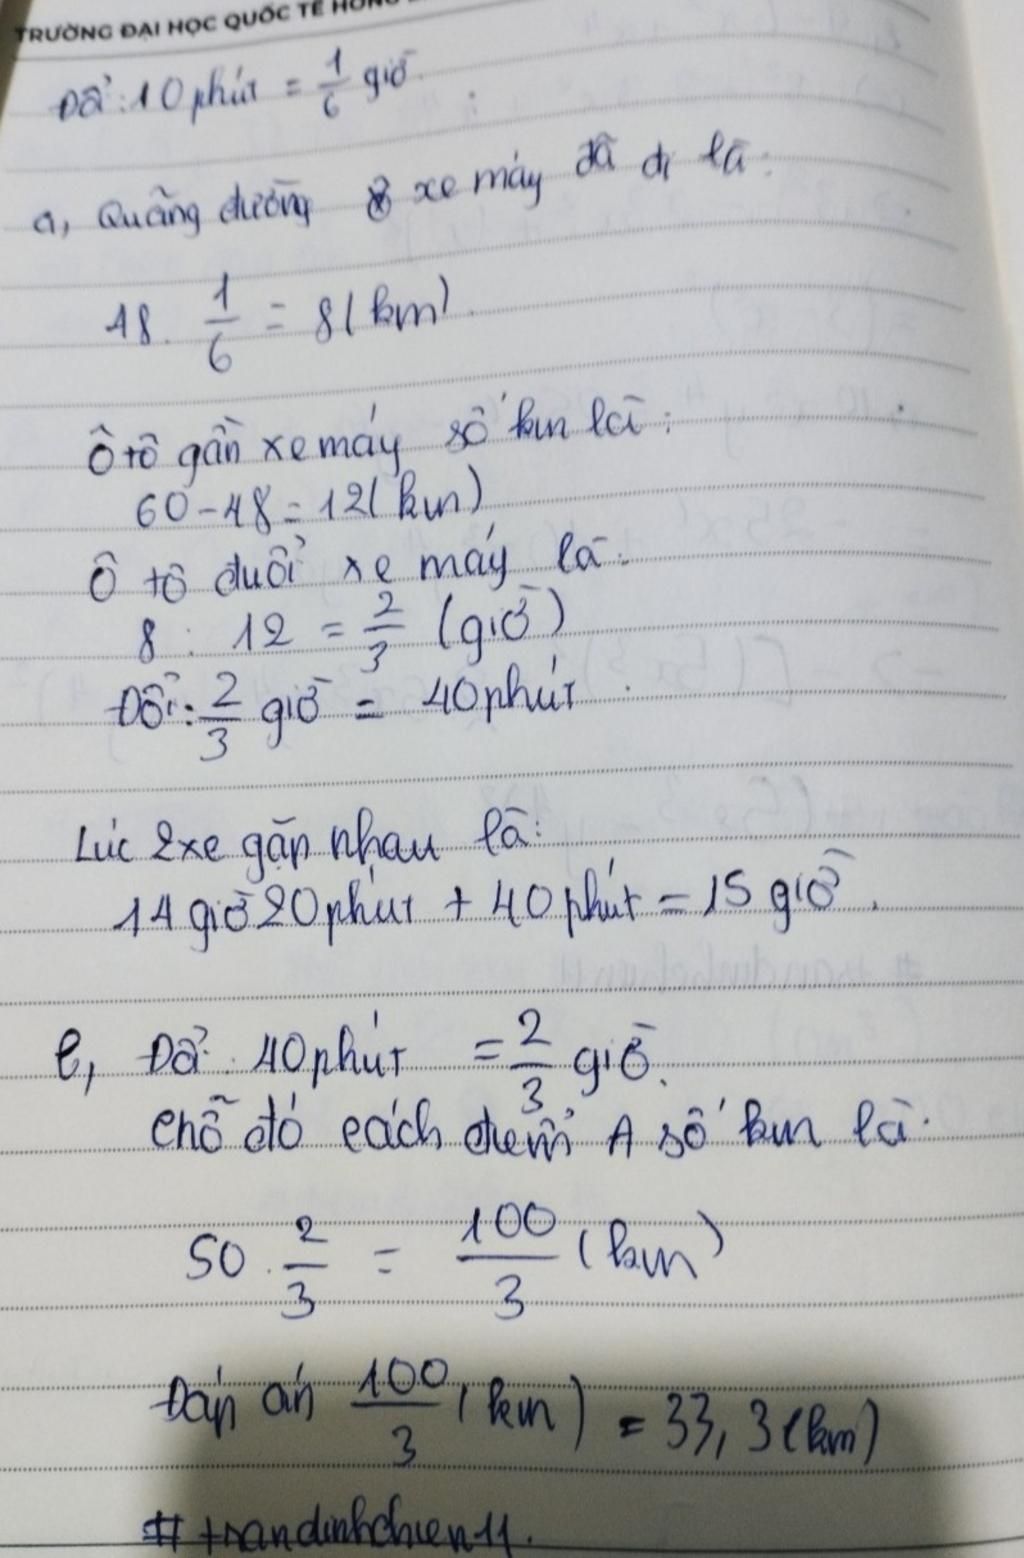 TRƯỜNG ĐẠI HỌC QUỐC TẾ HỒNG
Đổi: 10 phút = 1/6 giờ.
a, Quãng đường xe máy đã đi là:
48 . 1/6 = 8 (km).
Ô tô gần xe máy số km là:
60 - 48 = 12 (km)
Ô tô đuổi xe máy là:
8 : 12 = 2/3 (giờ)
Đổi: 2/3 giờ = 40 phút.
Lúc 2 xe gặp nhau là:
14 giờ 20 phút + 40 phút = 15 giờ.
b, Đổi: 40 phút = 2/3 giờ.
Chỗ đó cách điểm A số km là:
50 . 2/3 = 100/3 (km)
Đáp án 100/3 (km) = 33,3 (km)
# trandinhchien11.